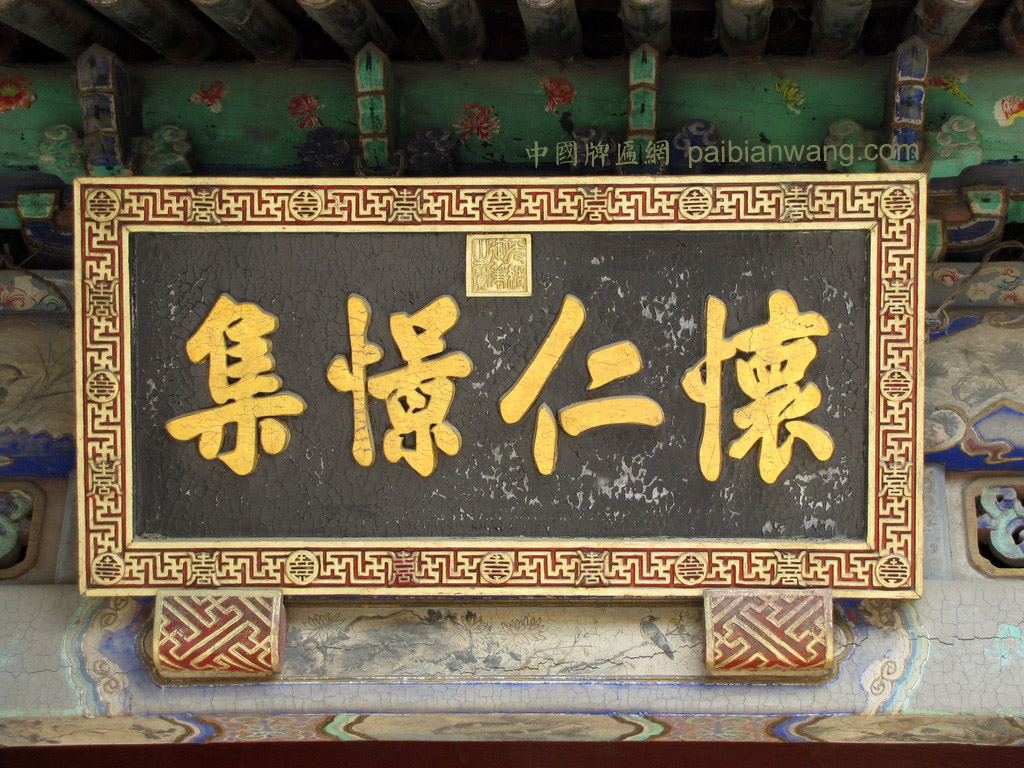 中國牌匾網 paibianwang.com
懷仁憬集